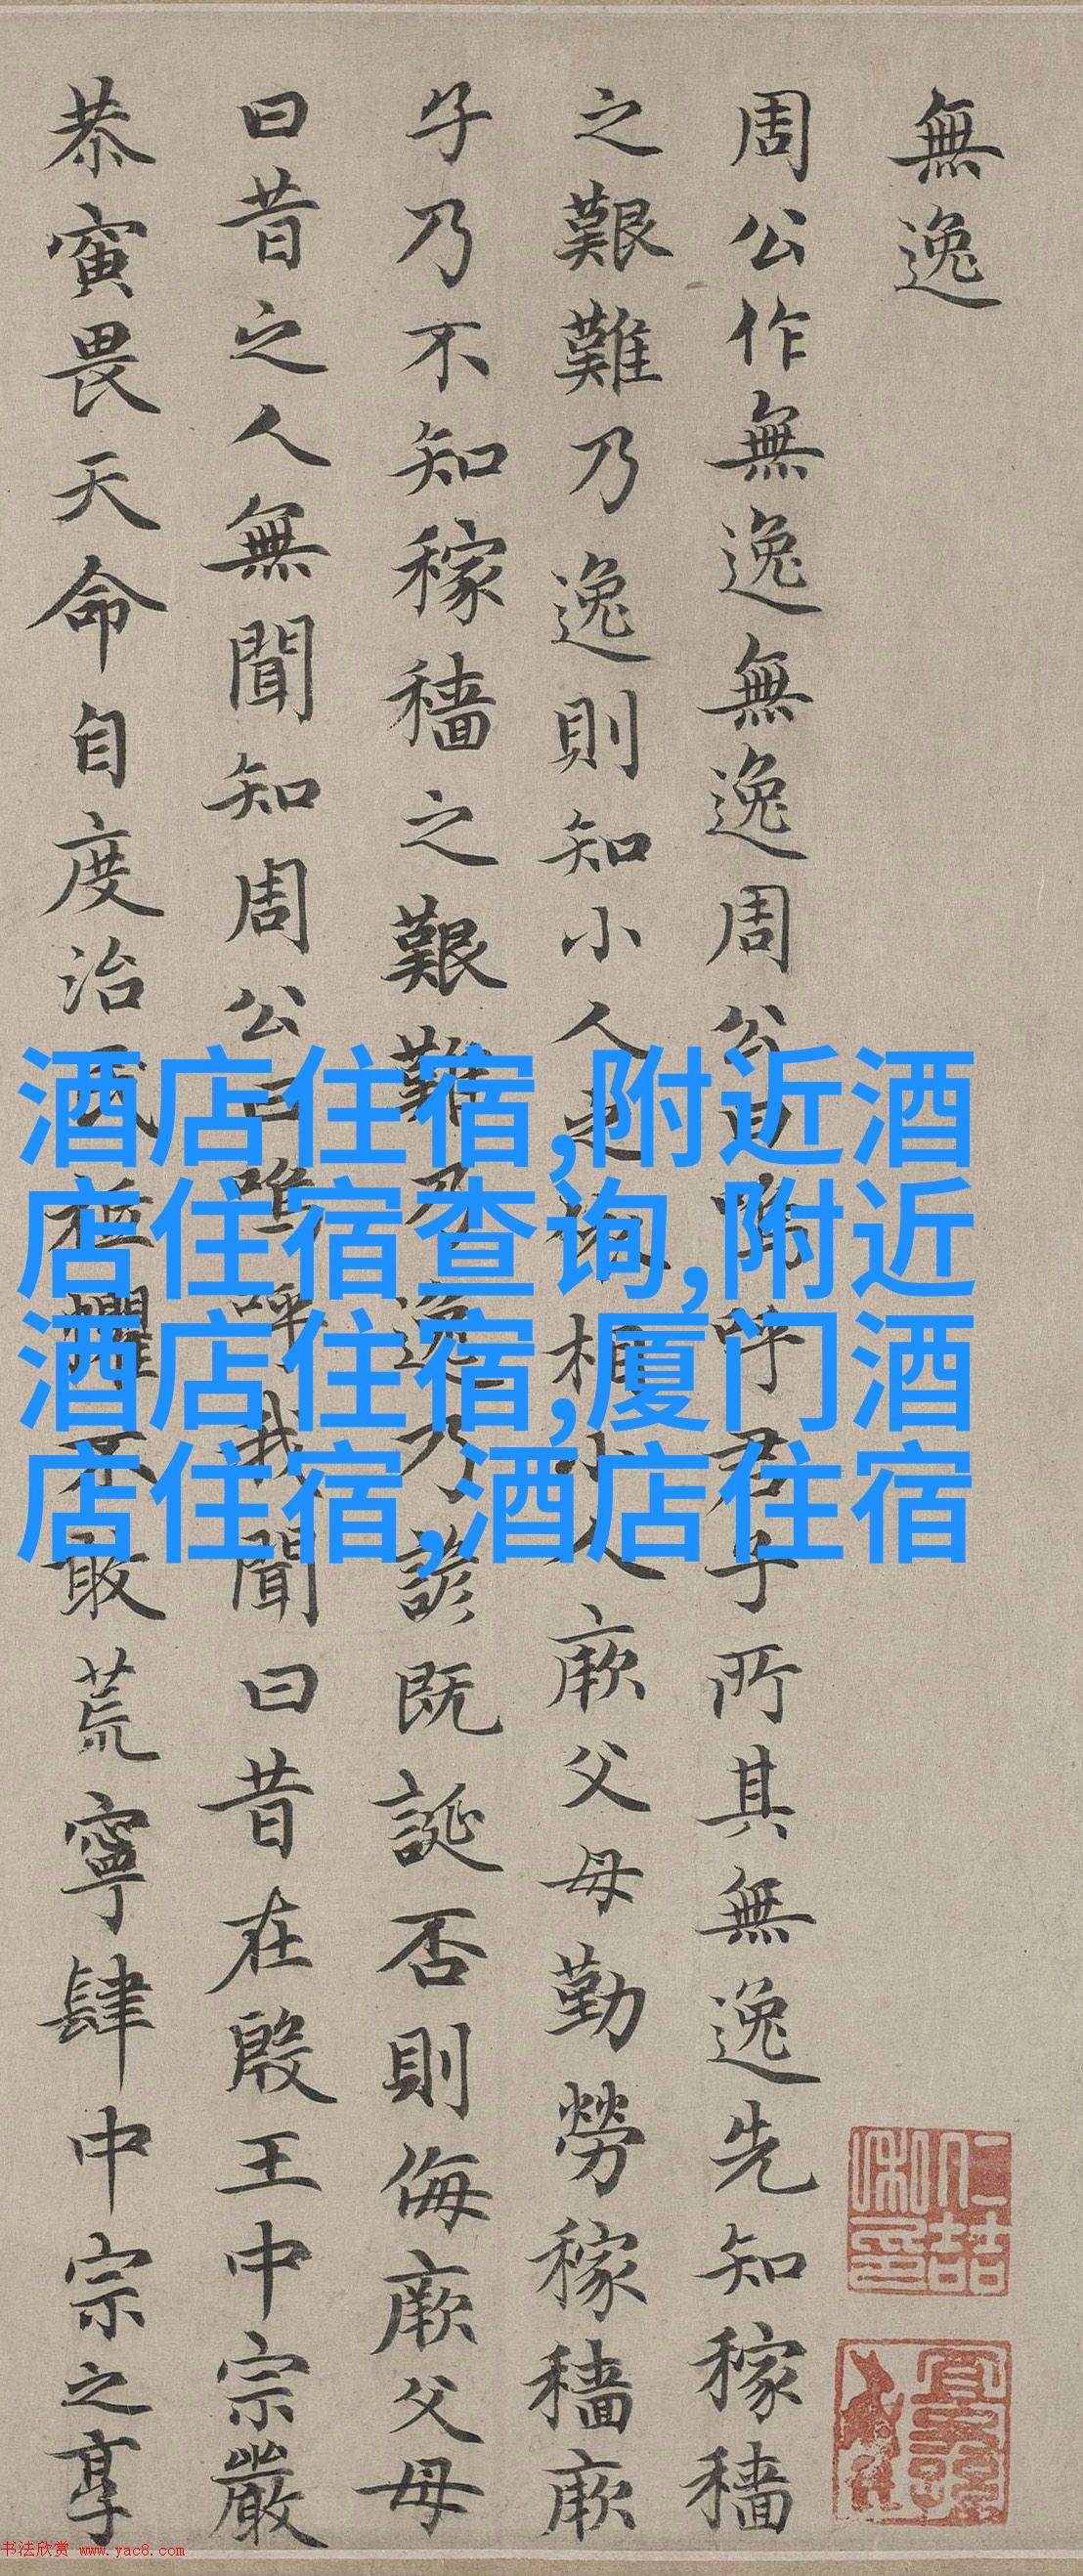 無逸
周公作無逸無逸周公曰嗚呼君子所其無逸先知稼穡
之艱難乃逸則知小人之依相小人厥父母勤勞稼穡厥
子乃不知稼穡之艱難乃逸乃諺既誕否則侮厥父母
曰昔之人無聞知周公曰嗚呼我聞曰昔在殷王中宗嚴
恭寅畏天命自度治民祗懼不敢荒寧肆中宗之享
酒店住宿,附近酒
店住宿查询,附近
酒店住宿,厦门酒
店住宿,酒店住宿
书法欣赏 www.yac8.com